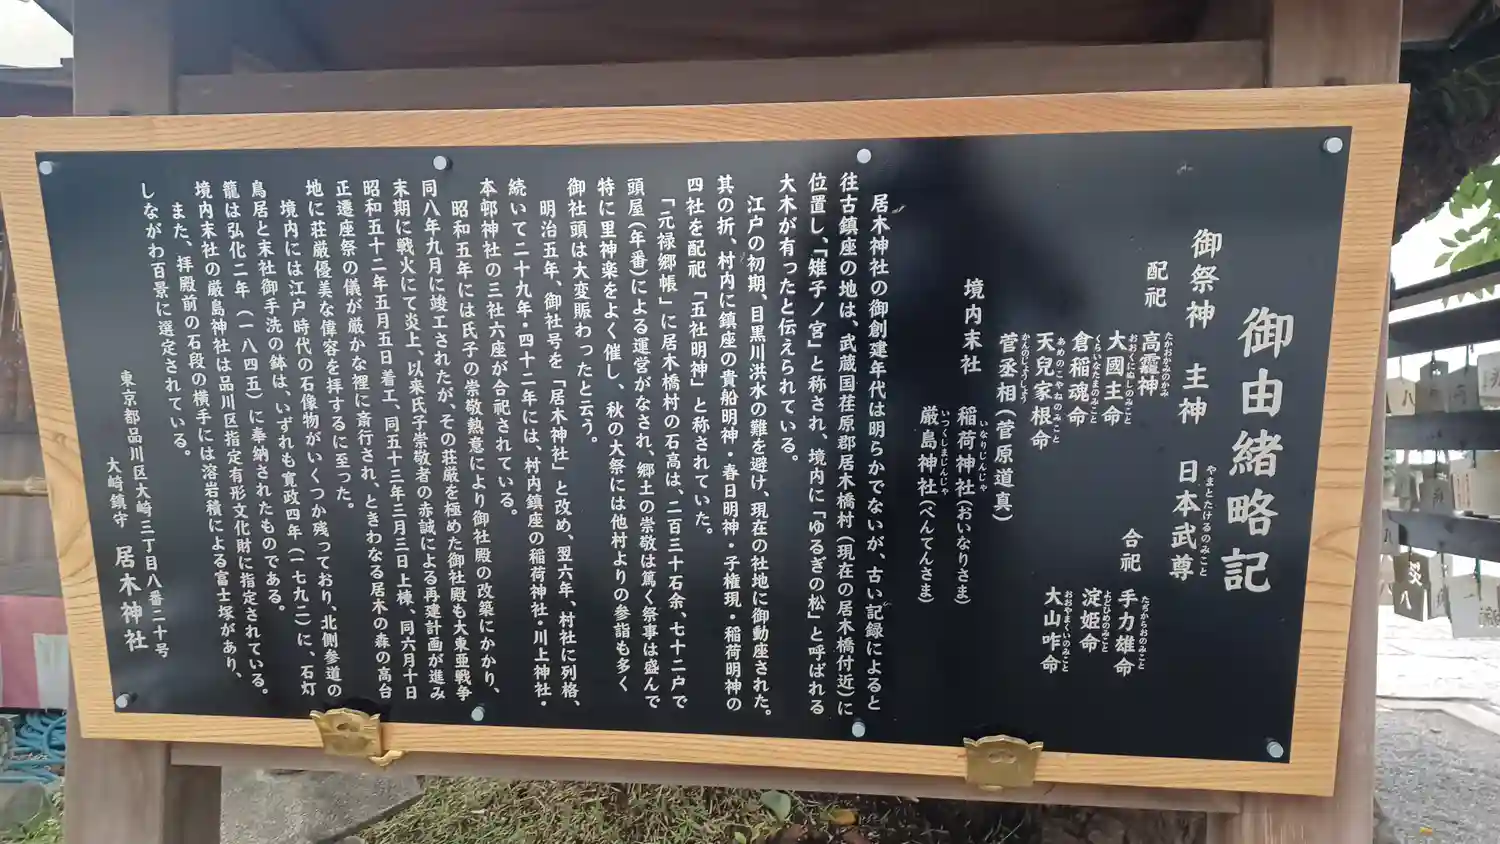 御由緒略記
御祭神 主神 日本武尊
やまとたけるのみこと
配祀 高龗神
たかおかみのかみ
大國主命
おおくにぬしのみこと
倉稲魂命
くらいなたまのみこと
天兒家根命
あめのこやねのみこと
菅丞相(菅原道真)
かんのじょうしょう
合祀 手力雄命
たぢからおのみこと
淀姫命
よどひめのみこと
大山咋命
おおやまくいのみこと
境内末社 稲荷神社(おいなりさま)
いなりじんじゃ
厳島神社(べんてんさま)
いつくしまじんじゃ
居木神社の御創建年代は明らかでないが、古い記録によると
往古鎮座の地は、武蔵国荏原郡居木橋村(現在の居木橋付近)に
位置し、「雉子ノ宮」と称され、境内に「ゆるぎの松」と呼ばれる
大木が有ったと伝えられている。
江戸の初期、目黒川洪水の難を避け、現在の社地に御動座された。
其の折、村内に鎮座の貴船明神・春日明神・子権現・稲荷明神の
四社を配祀「五社明神」と称されていた。
「元禄郷帳」に居木橋村の石高は、二百三十石余、七十二戸で
頭屋(年番)による運営がなされ、郷土の崇敬は篤く祭事は盛んで
特に里神楽をよく催し、秋の大祭には他村よりの参詣も多く
御社頭は大変賑わったと云う。
明治五年、御社号を「居木神社」と改め、翌六年、村社に列格、
続いて二十九年・四十二年には、村内鎮座の稲荷神社・川上神社・
本邨神社の三社六座が合祀されている。
昭和五年には氏子の崇敬熱意により御社殿の改築にかかり、
同八年九月に竣工されたが、その荘厳を極めた御社殿も大東亜戦争
末期に戦火にて炎上、以来氏子崇敬者の赤誠による再建計画が進み
昭和五十二年五月五日着工、同五十三年三月三日上棟、同六月十日
正遷座祭の儀が厳かな裡に斎行され、ときわなる居木の森の高台
地に荘厳優美な偉容を拝するに至った。
境内には江戸時代の石像物がいくつか残っており、北側参道の
鳥居と末社御手洗の鉢は、いずれも寛政四年(一七九二)に、石灯
籠は弘化二年(一八四五)に奉納されたものである。
境内末社の厳島神社は品川区指定有形文化財に指定されている。
また、拝殿前の石段の横手には溶岩積による富士塚があり、
しながわ百景に選定されている。
東京都品川区大崎三丁目八番二十号
大崎鎮守 居木神社